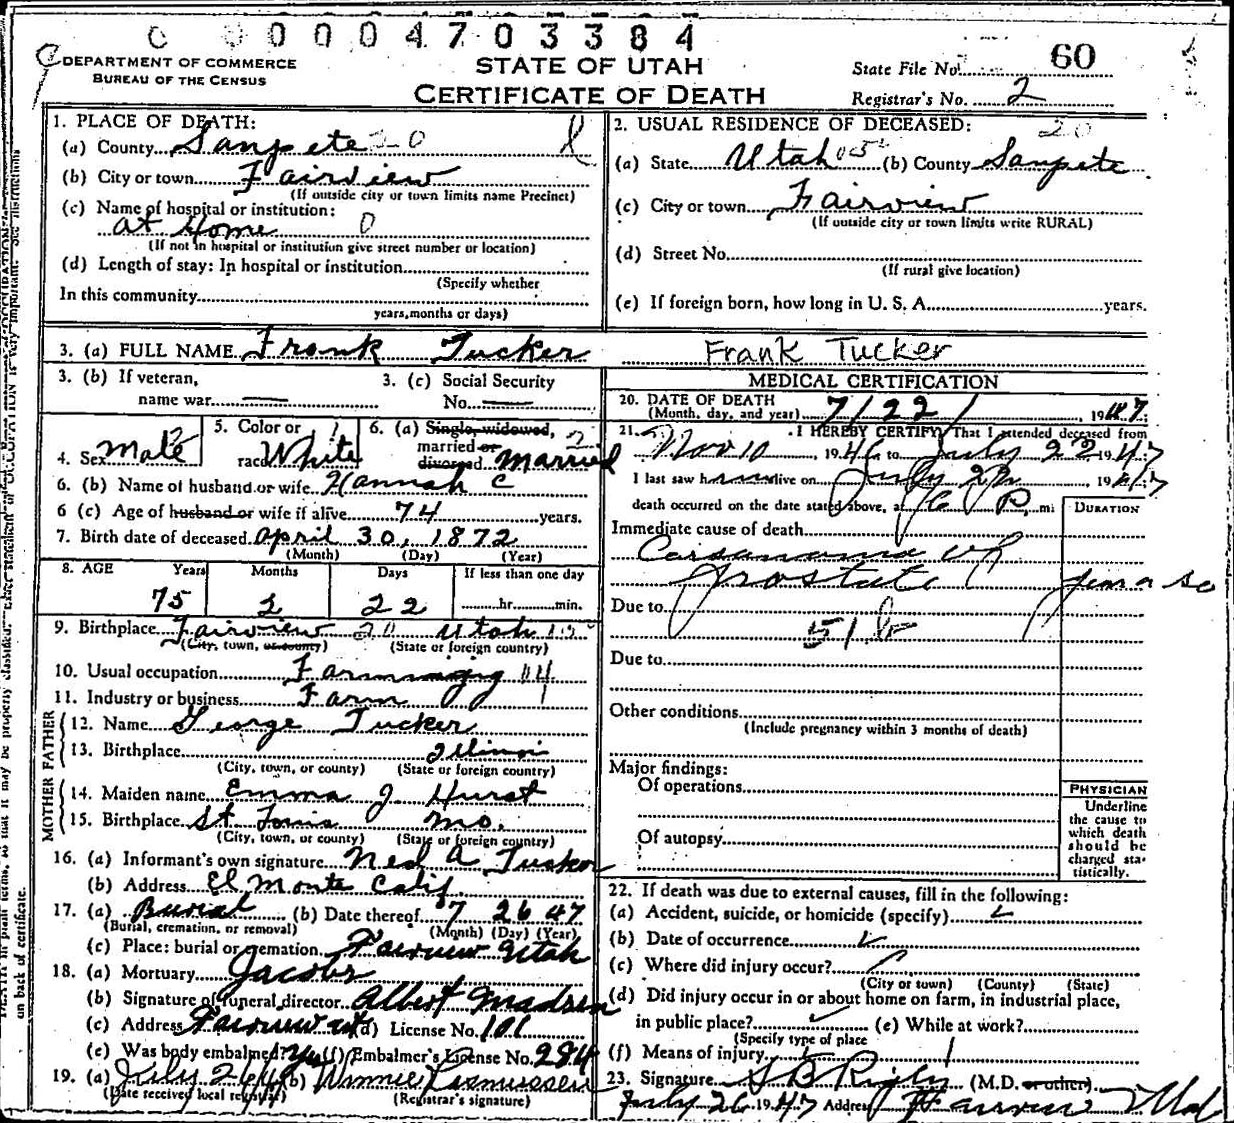 0000470 3384
DEPARTMENT OF COMMERCE
BUREAU OF THE CENSUS
STATE OF UTAH
CERTIFICATE OF DEATH
State File No. 60
Registrar's No. 2
1. PLACE OF DEATH:
(a) County Sanpete 20
(b) City or town Fairview
(If outside city or town limits name Precinct)
(c) Name of hospital or institution:
at Home 0
(If not in hospital or institution give street number or location)
(d) Length of stay: In hospital or institution
(Specify whether
In this community
years, months or days)
2. USUAL RESIDENCE OF DECEASED: 20
(a) State Utah 05 (b) County Sanpete
(c) City or town Fairview
(If outside city or town limits write RURAL)
(d) Street No.
(If rural give location)
(e) If foreign born, how long in U. S. A. years.
3. (a) FULL NAME Frank Tucker Frank Tucker
3. (b) If veteran, 3. (c) Social Security
name war — No. —
4. Sex Male 5. Color or race White 6. (a) Single, widowed, married or divorced Married
6. (b) Name of husband or wife Hannah C
6 (c) Age of husband or wife if alive 74 years.
7. Birth date of deceased April 30, 1872
(Month) (Day) (Year)
8. AGE Years Months Days If less than one day
75 2 22 hr. min.
9. Birthplace Fairview 20 Utah
(City, town, or county) (State or foreign country)
10. Usual occupation Farming
11. Industry or business Farm
FATHER
12. Name George Tucker
13. Birthplace Illinois
(City, town, or county) (State or foreign country)
MOTHER
14. Maiden name Emma J Hurst
15. Birthplace St Louis Mo.
(City, town, or county) (State or foreign country)
16. (a) Informant's own signature Ned A Tucker
(b) Address El Monte Calif
17. (a) Burial (b) Date thereof 7 26 47
(Burial, cremation, or removal) (Month) (Day) (Year)
(c) Place: burial or cremation Fairview Utah
18. (a) Mortuary Jacobs
(b) Signature of funeral director Albert Madsen
(c) Address Fairview Ut (d) License No. 101
(e) Was body embalmed? Yes (f) Embalmer's License No. 284
19. (a) July 26 (b) Winnie Rasmussen
(Date received local registrar) (Registrar's signature)
MEDICAL CERTIFICATION
20. DATE OF DEATH
(Month, day, and year) 7/22/, 1947
21. I HEREBY CERTIFY, That I attended deceased from
Nov 10, 1946 to July 22 1947
I last saw him alive on July 22 1947
death occurred on the date stated above, at 6 P. m.
DURATION
Immediate cause of death
Carcinoma of
Prostate
Due to
51
Due to
Other conditions
(Include pregnancy within 3 months of death)
Major findings:
Of operations
Of autopsy
PHYSICIAN
Underline
the cause to
which death
should be
charged sta-
tistically.
22. If death was due to external causes, fill in the following:
(a) Accident, suicide, or homicide (specify)
(b) Date of occurrence
(c) Where did injury occur?
(City or town) (County) (State)
(d) Did injury occur in or about home on farm, in industrial place,
in public place? (e) While at work?
(Specify type of place
(f) Means of injury
23. Signature S B Rigby (M.D. or other)
July 26 1947 Address Fairview Utah
on back of certificate.